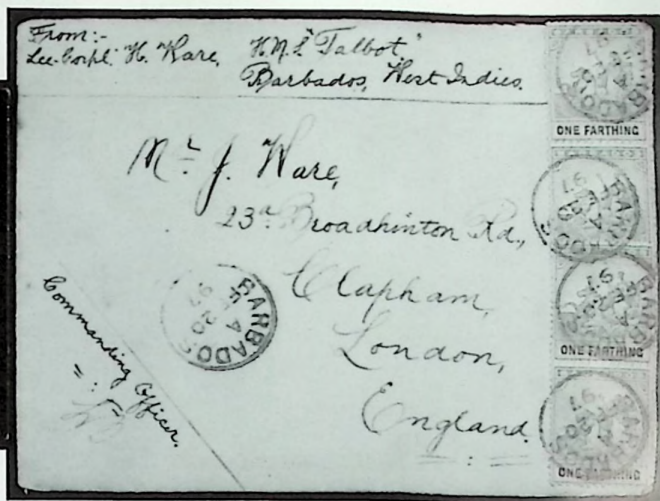 From:-
Lce-Corpl. H. Ware, H.M.S "Talbot"
Barbados, West Indies.
Mr. J. Ware,
23a Broadhinton Rd.,
Clapham,
London,
England.
Commanding Officer.
BARBADOS
A
FE 20
97
BARBADOS
97
ONE FARTHING
BARBADOS
A
FE 20
97
BARBADOS
97
ONE FARTHING
BARBADOS
97
ONE FARTHING